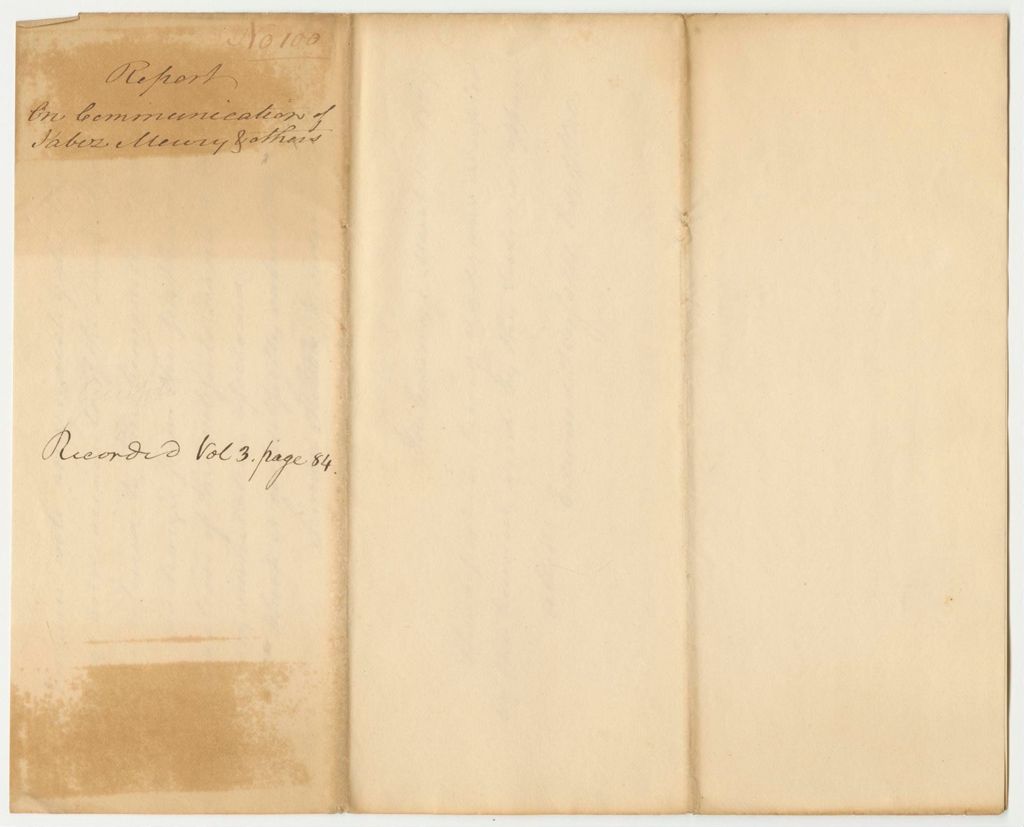 No 100
Report
On Communication of
Jabez Mowry & others
Recorded Vol 3. page 84.